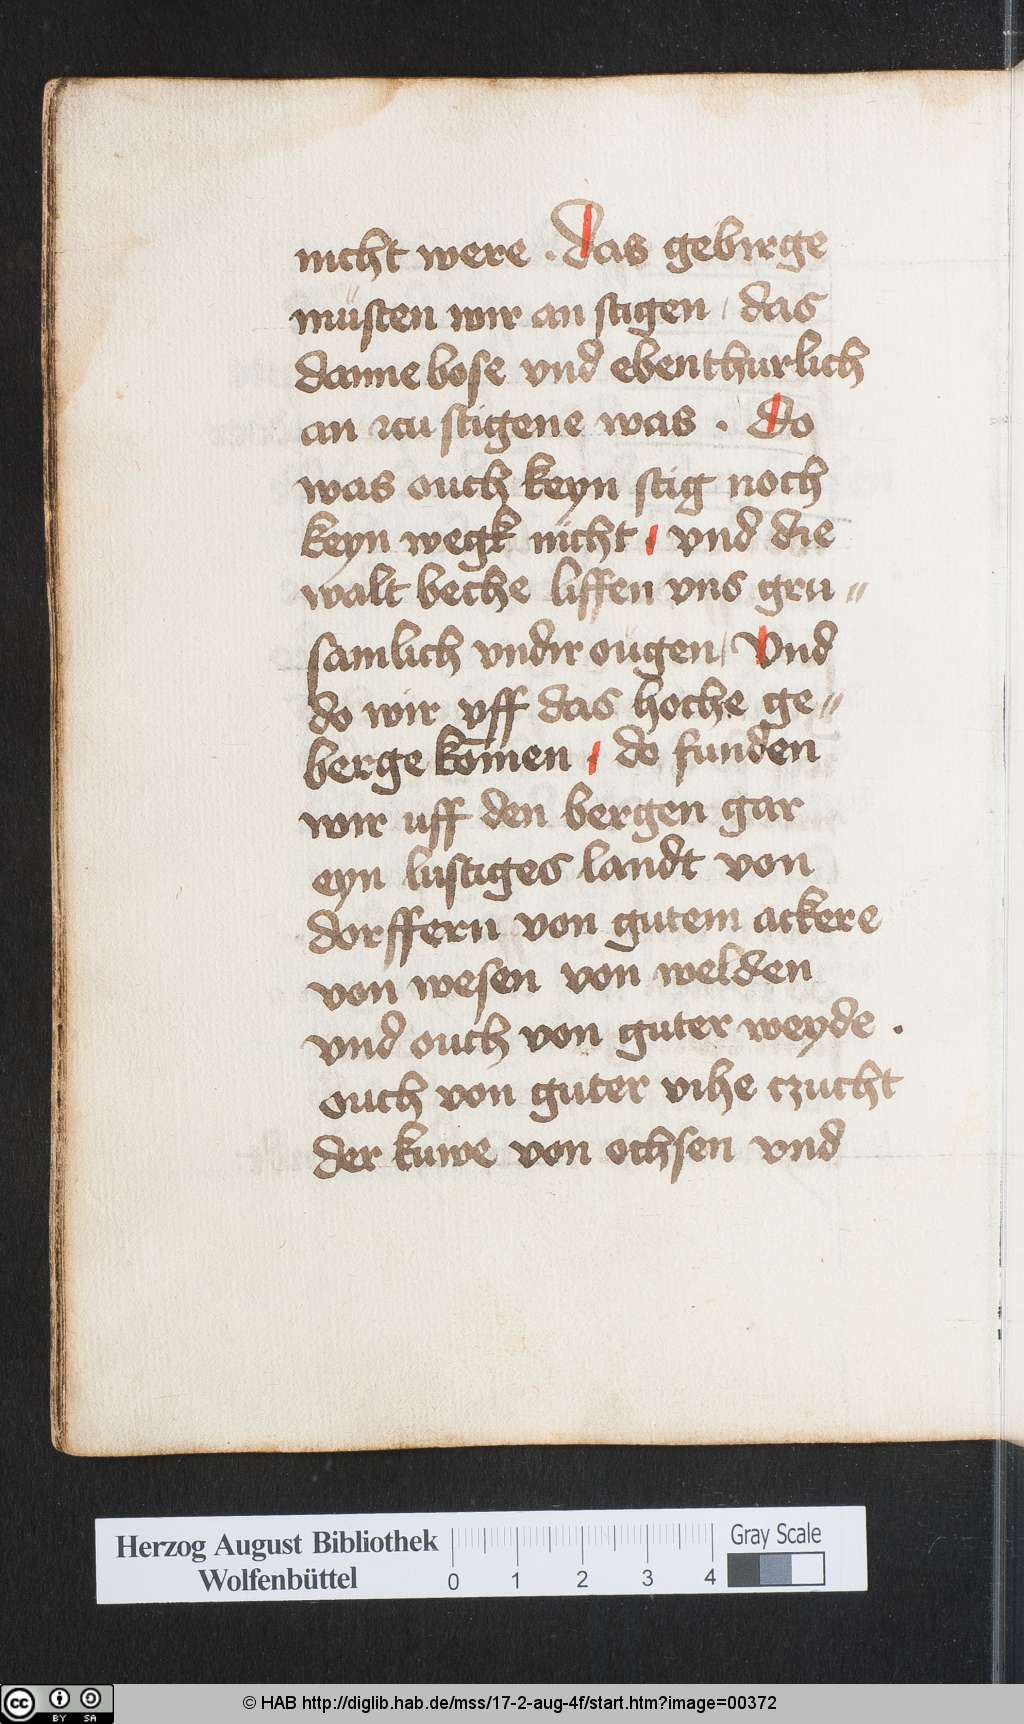 nicht were . Das gebirge
müsten wir an stigen / das
danne bose vnd ebenthurlich
an czu stigene was . Do
was ouch keyn stig noch
keyn wegk nicht . vnd die
walt beche liffen vns gru〃
samlich vndir ougen / Vnd
do wir vff das hoche ge〃
berge kōmen . do funden
wir uff den bergen gar
eyn lustiges landt von
dorffern von gutem ackere
von wesen von welden
vnd ouch von guter weyde .
ouch von guter vihe czucht
der kuwe von ochsen vnd
Herzog August Bibliothek
Wolfenbüttel
0 1 2 3 4
Gray Scale
cc BY SA
© HAB http://diglib.hab.de/mss/17-2-aug-4f/start.htm?image=00372